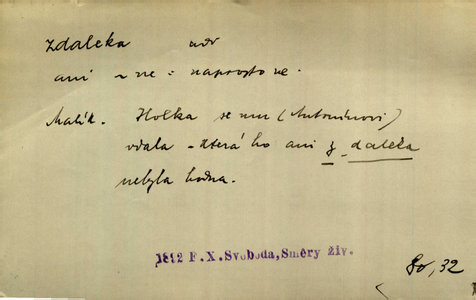 zdaleka adv
ani ~ ne = naprosto ne.
Malík. Holka se mu (Antonínovi)
vdala - která ho ani z daleka
nebyla hodna.
1892 F.X.Svoboda, Směry živ.
80, 32